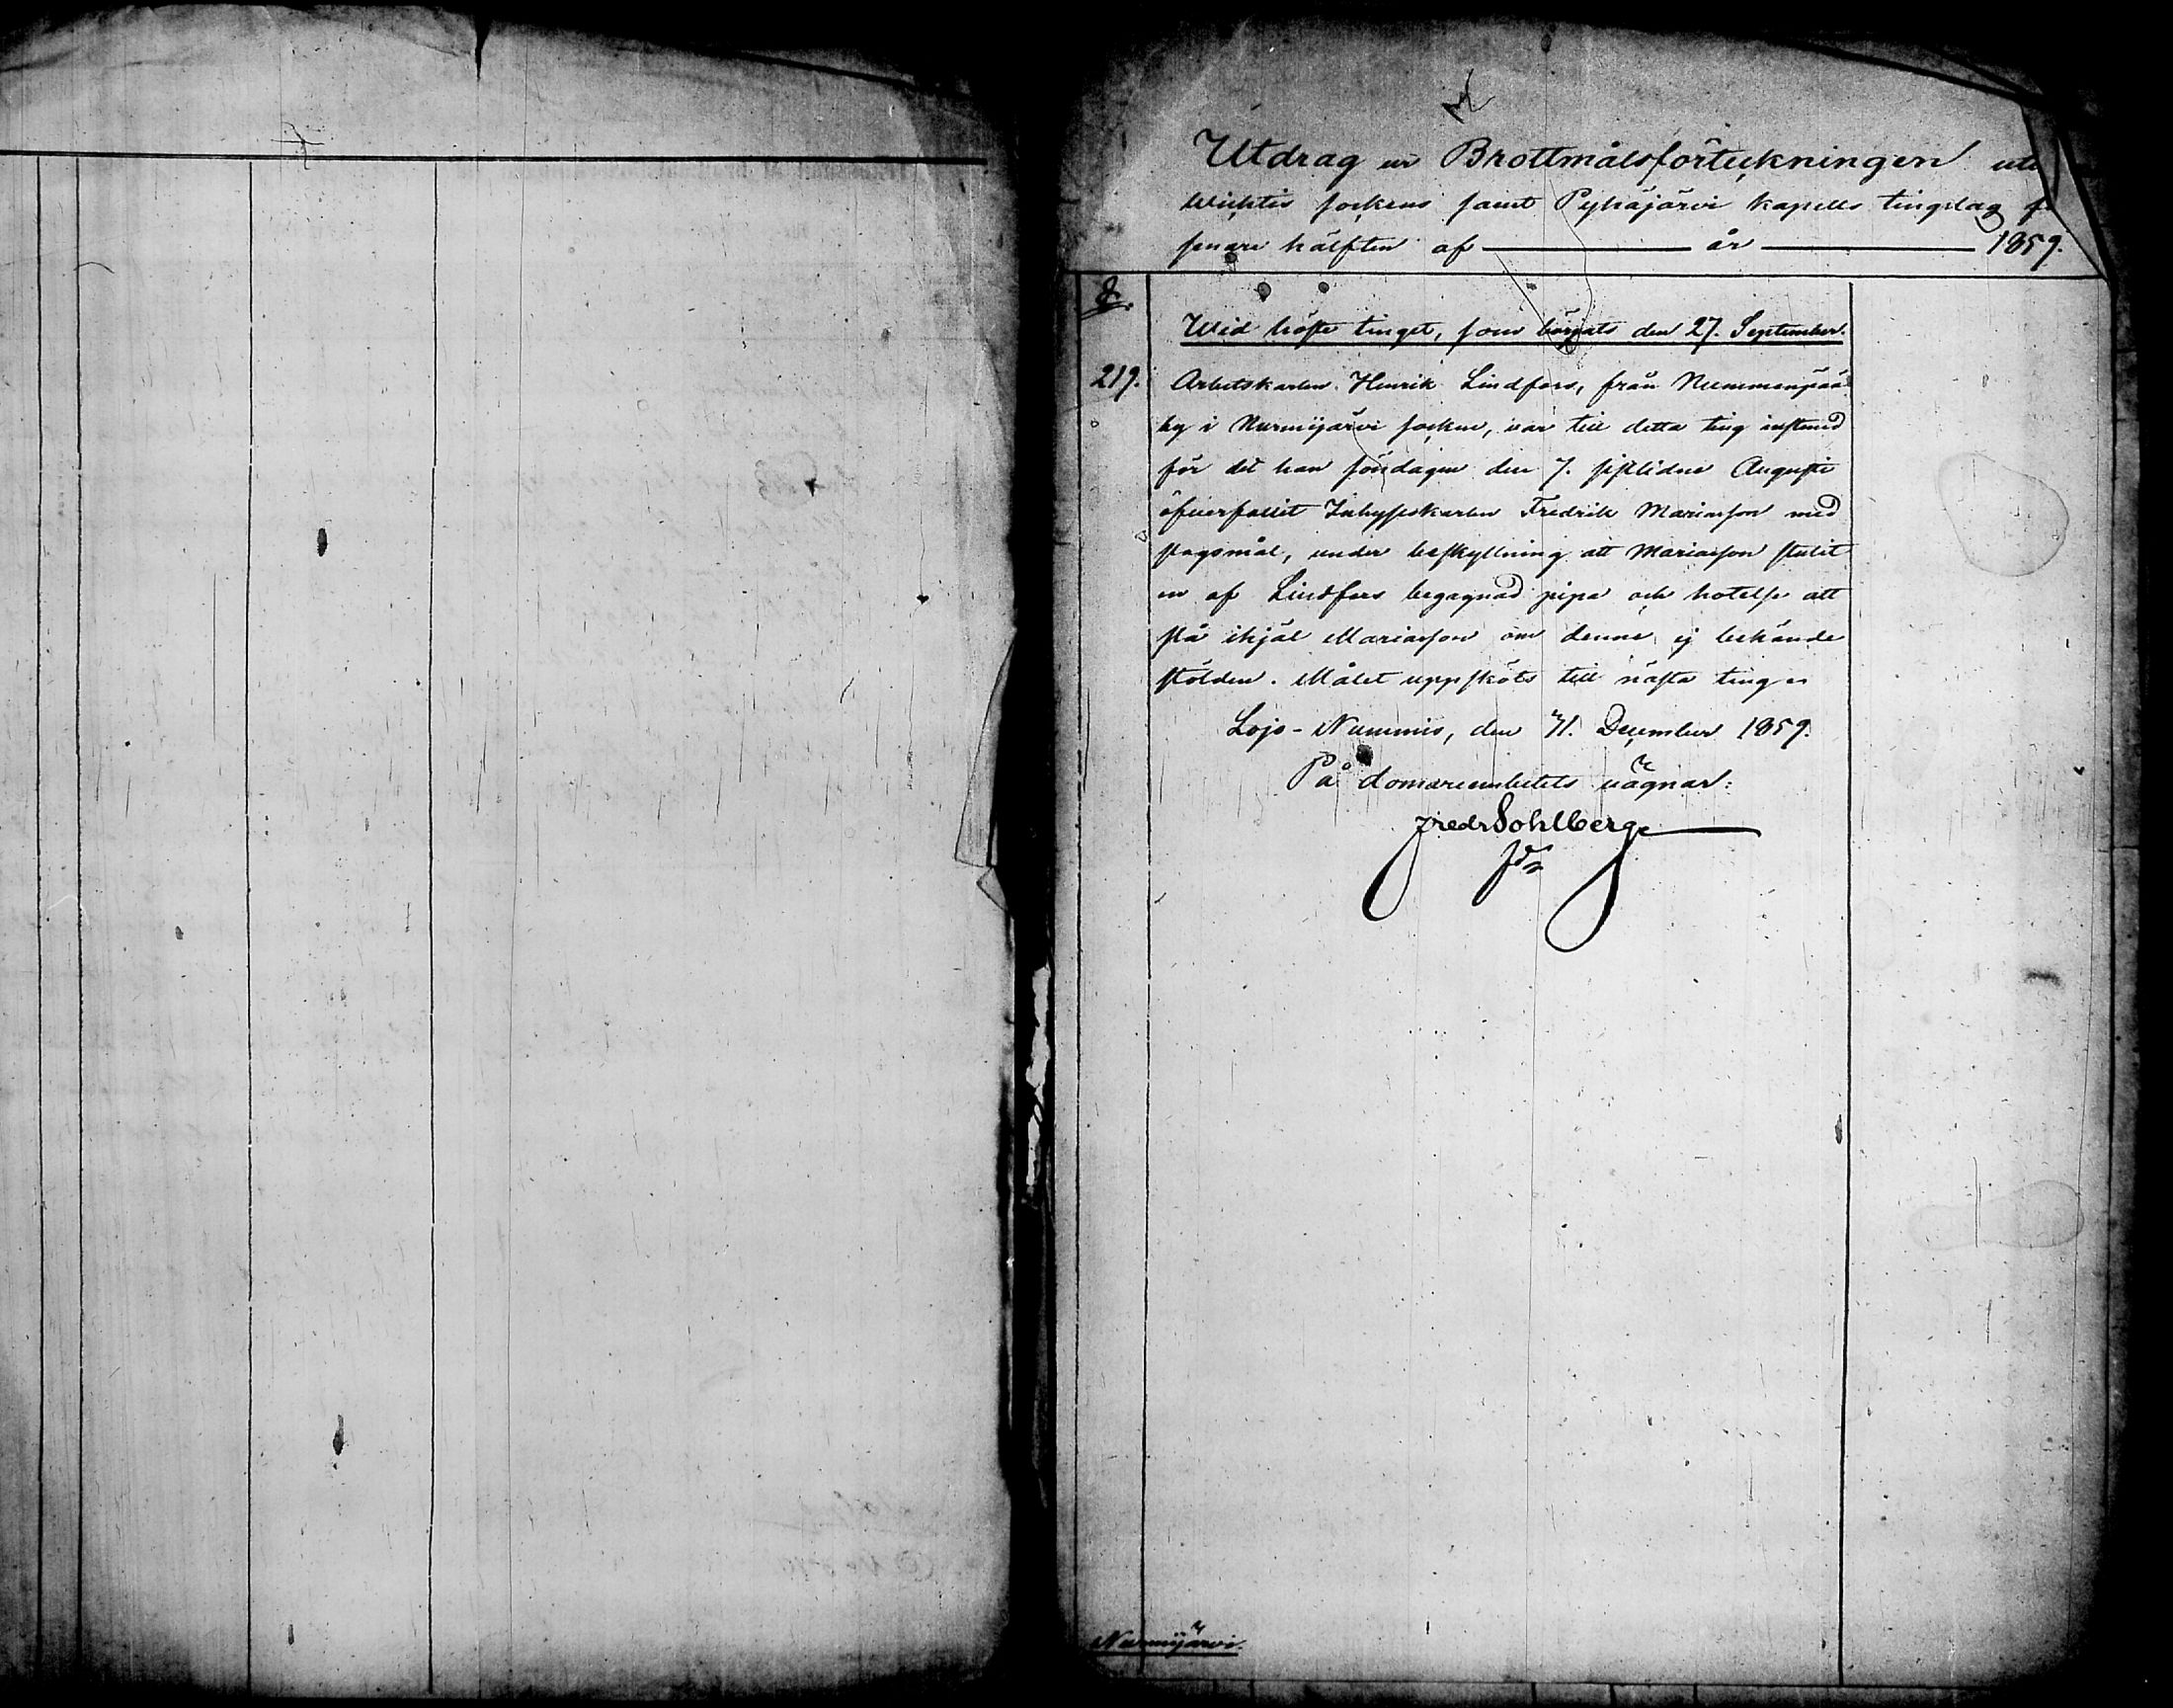 Utdrag ur Brottmålsförteckningen uti
Wichtis sockens samt Pyhäjärvi kapells tingslag f
senare hälften af år 1859.
§.
Wid höste tinget, som börjats den 27. September.
219. Arbetskarlen Henrik Lindfors, från Nummenpää
by i Nurmijärvi socken, var till detta ting instemd
för det han söndagen den 7. sistlidne Augusti
öfverfallit Inhyseskarlen Fredrik Mariasson med
slagsmål, under beskyllning att Mariasson stulit
en af Lindfors begagnad pipa och hotelse att
slå ihjäl Mariasson om denne ej bekände
stölden. Målet uppsköts till nästa ting.
Lojo-Nummis, den 31. December 1859.
På domareembetets vägnar:
Fredr Sohlberg
Nurmijärvi.